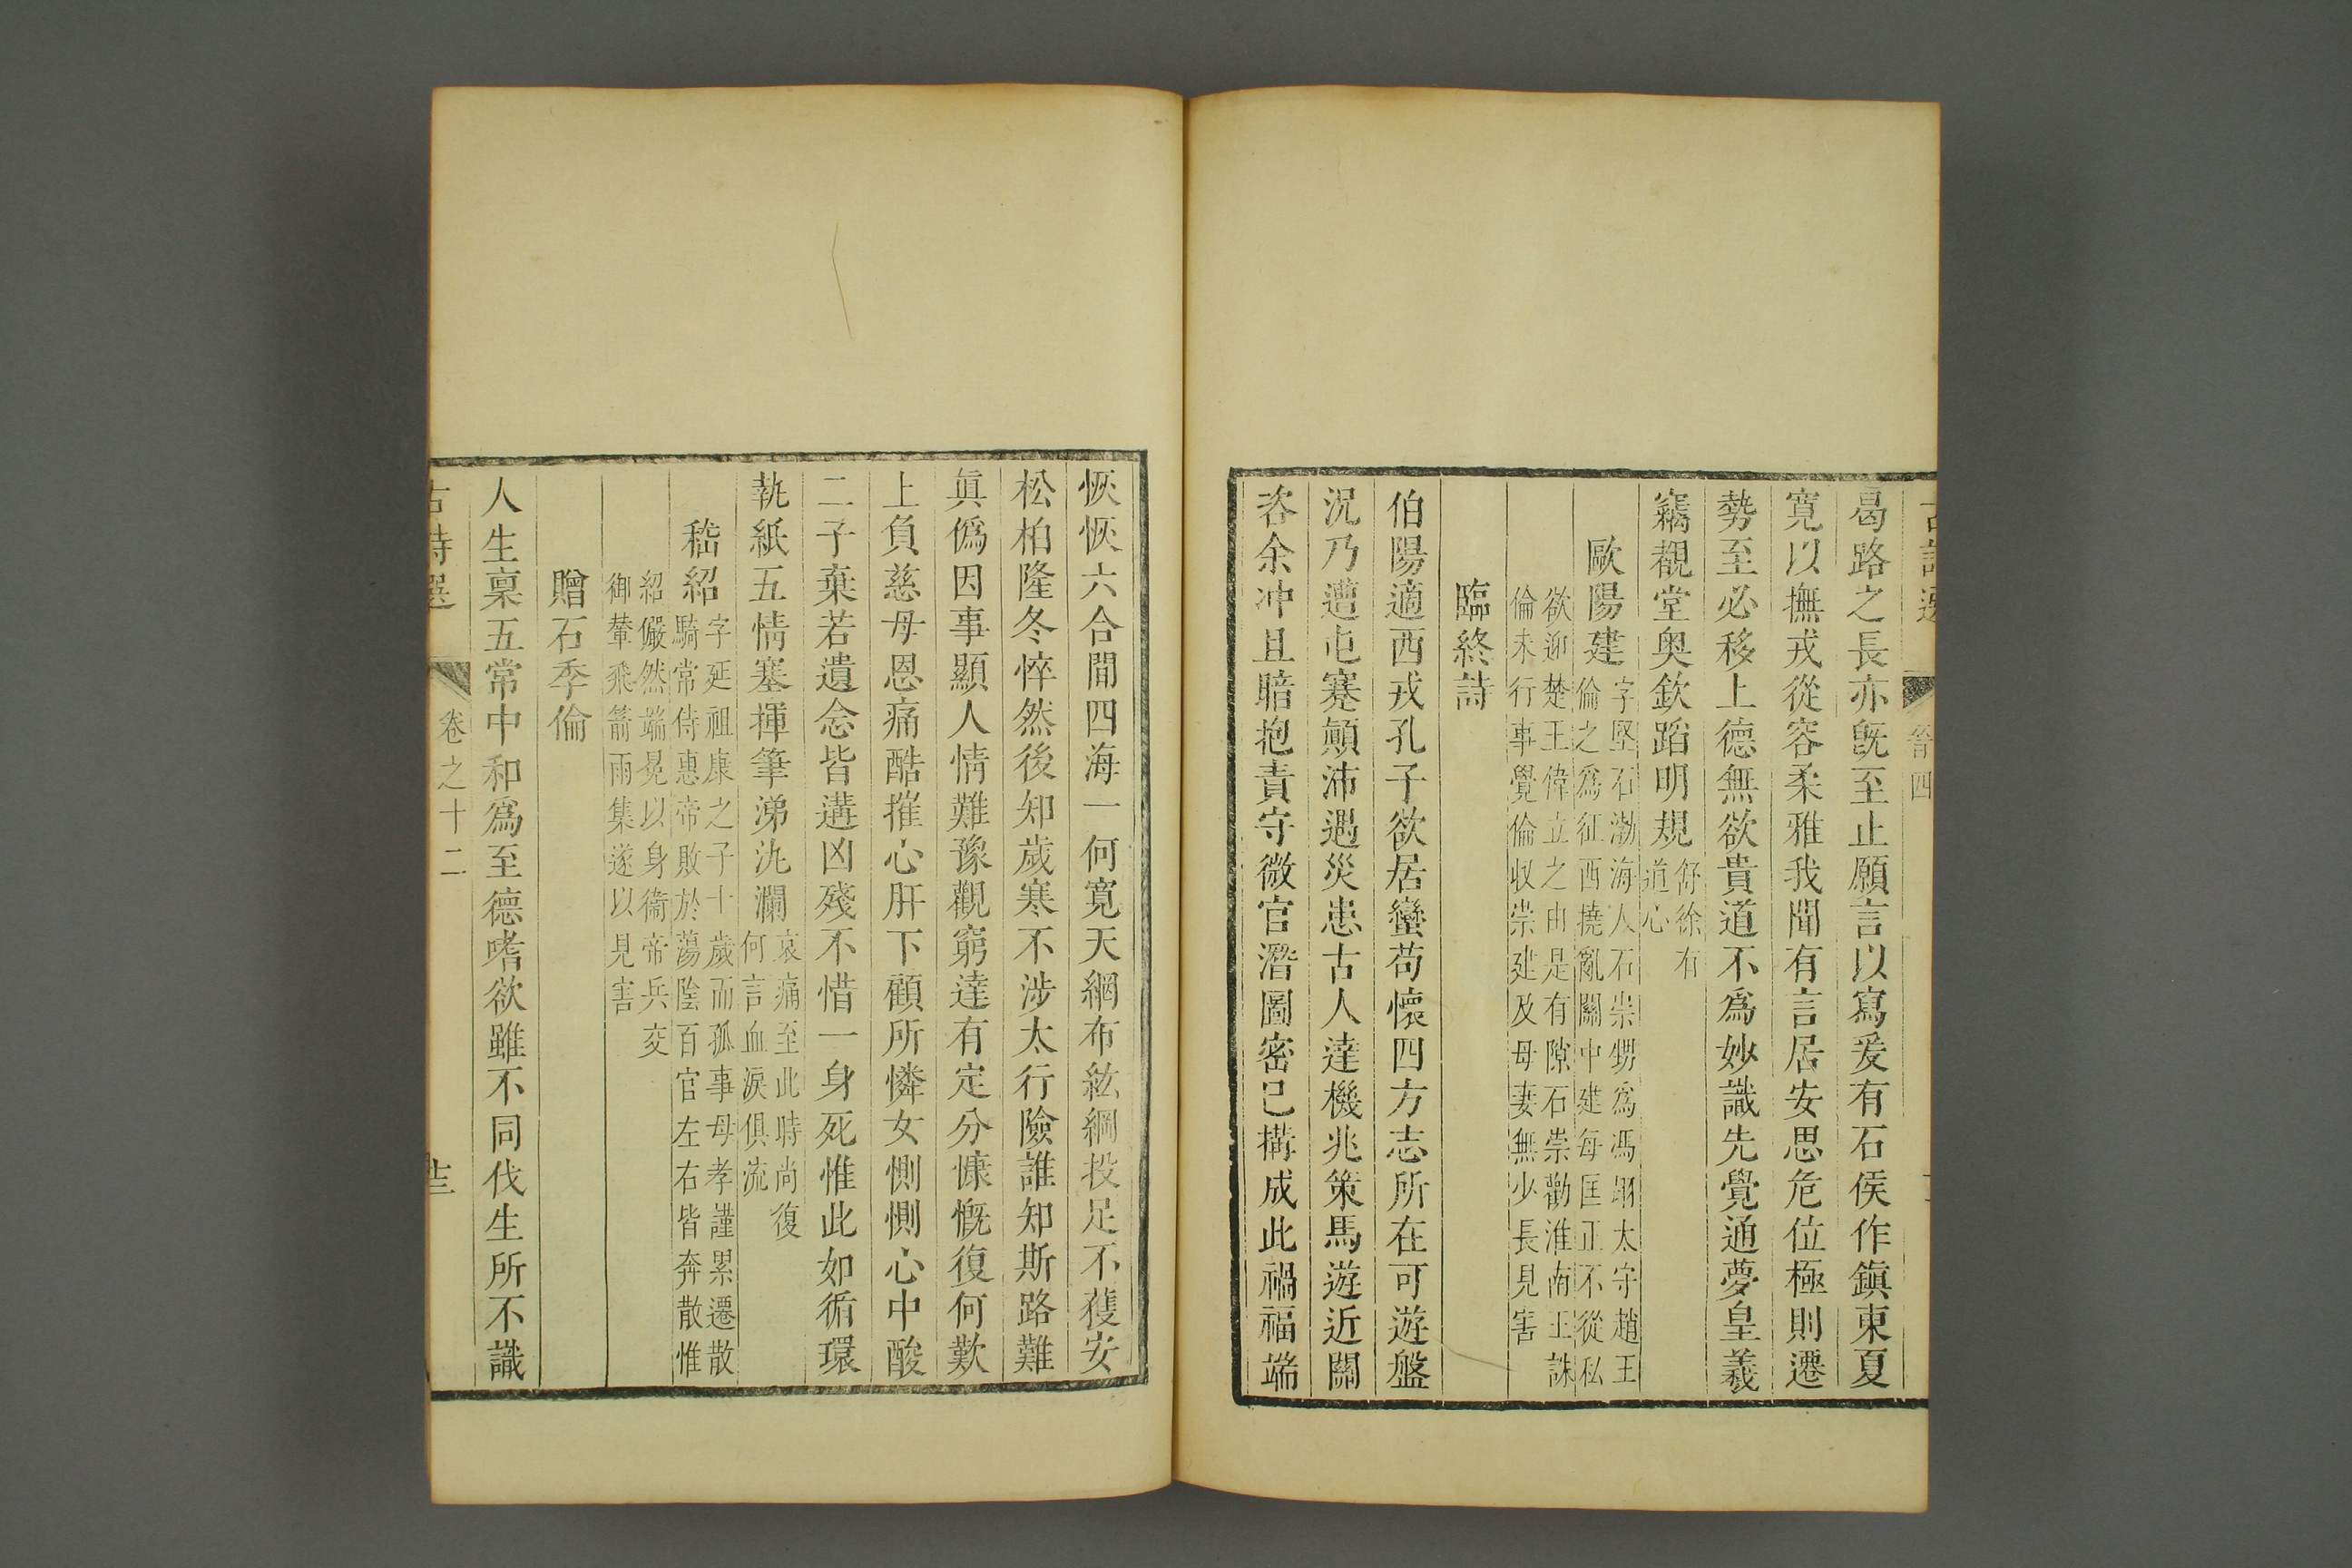 古詩選
晉四
曷路之長亦旣至止願言以寫爰有石侯作鎮東夏
寬以撫戎從容柔雅我聞有言居安思危位極則遷
勢至必移上德無欲貴道不為妙識先覺通夢皇羲
竊覩堂奧欽蹈明規舒徐有
道心
歐陽建字堅石渤海人石崇甥為馮翊太守趙王
倫之為征西撓亂關中建每匡正不從私
欲迎楚王偉立之由是有隙石崇勸淮南王誅
倫未行事覺倫収崇建及母妻無少長見害
臨終詩
伯陽適西戎孔子欲居蠻苟懷四方志所在可遊盤
況乃遭屯蹇顛沛遇災患古人達機兆策馬遊近關
咨余冲且暗抱責守微官潛圖密已搆成此禍福端
恢恢六合間四海一何寬天網布紘綱投足不獲安
松柏隆冬悴然後知歲寒不涉太行險誰知斯路難
眞僞因事顯人情難豫觀窮達有定分慷慨復何歎
上負慈母恩痛酷摧心肝下顧所憐女惻惻心中酸
二子棄若遺念皆遘凶殘不惜一身死惟此如循環
執紙五情塞揮筆涕汍瀾哀痛至此時尚復
何言血淚俱流
嵇紹字延祖康之子十歲而孤事母孝謹累遷散
騎常侍惠帝敗於蕩陰百官左右皆奔散惟
紹儼然端冕以身衞帝兵交
御輦飛箭雨集遂以見害
贈石季倫
人生稟五常中和為至德嗜欲雖不同伐生所不識
古詩選
卷之十二
十三